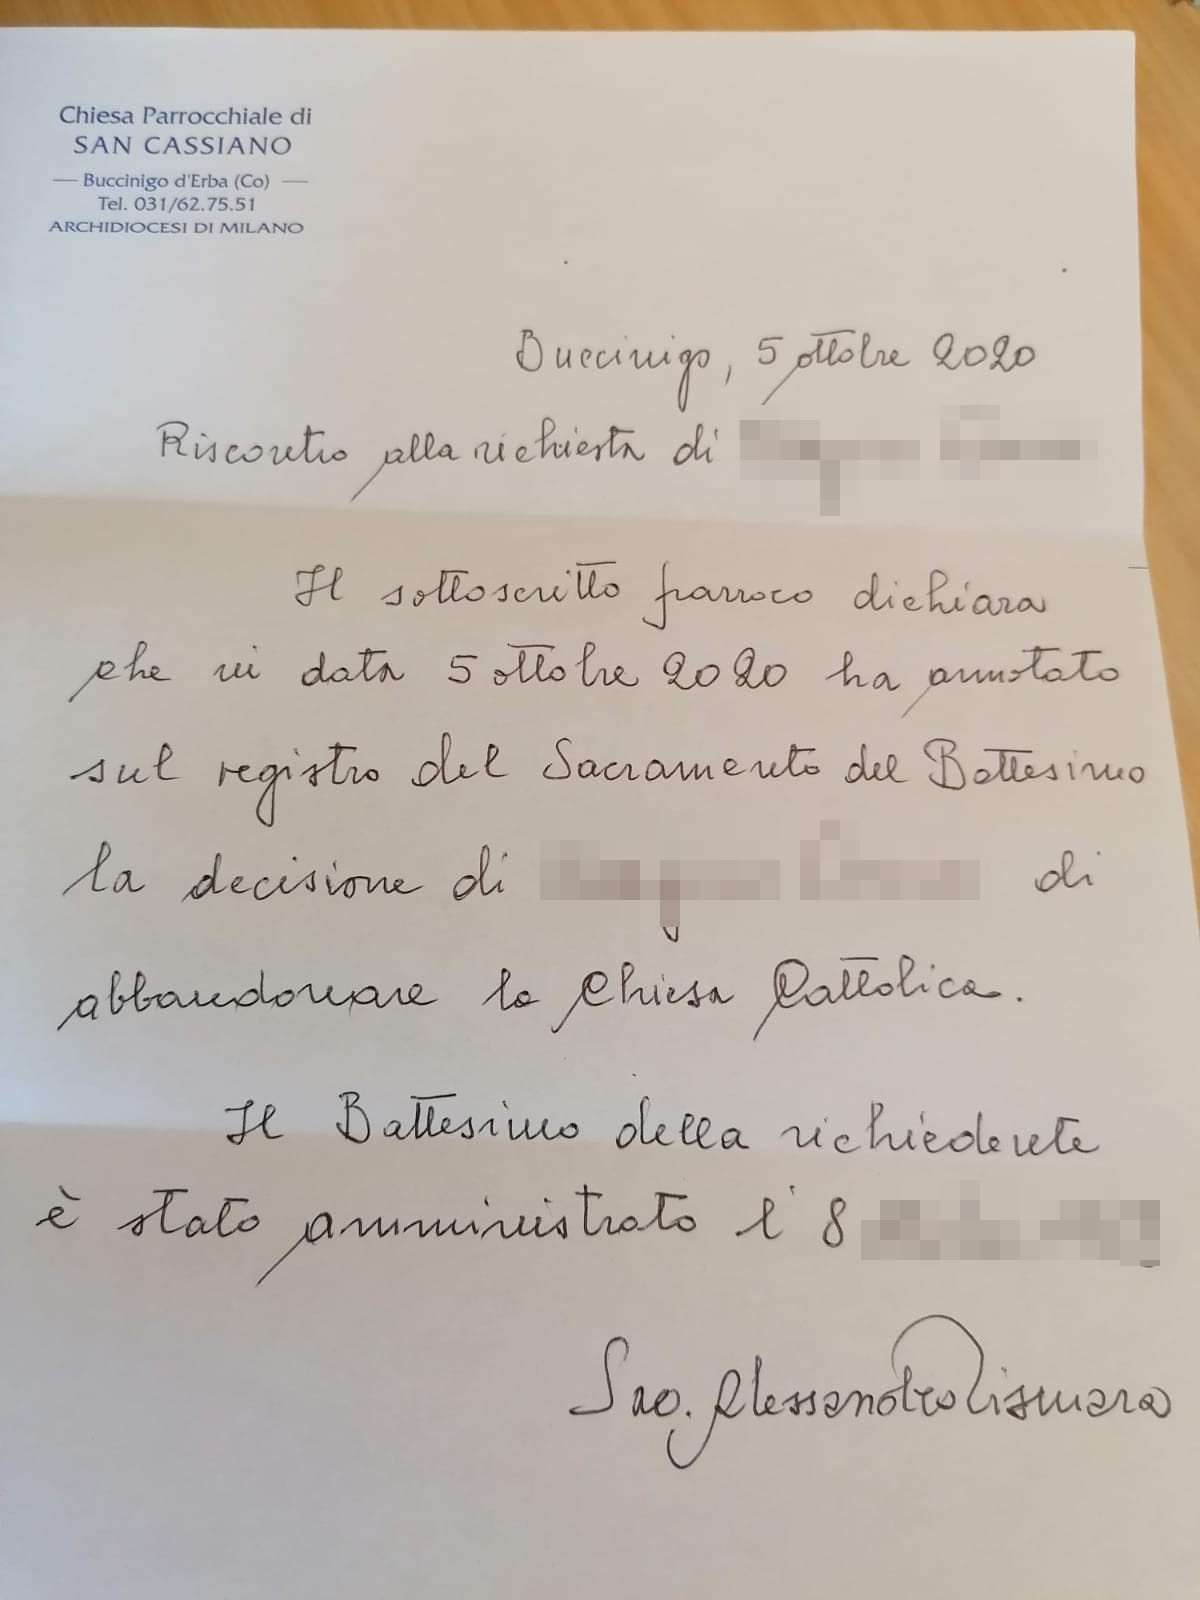 Chiesa Parrocchiale di
SAN CASSIANO
— Buccinigo d'Erba (Co) —
Tel. 031/62.75.51
ARCHIDIOCESI DI MILANO
Buccinigo, 5 ottobre 2020
Riscontro alla richiesta di
Il sottoscritto parroco dichiara
che in data 5 ottobre 2020 ha annotato
sul registro del Sacramento del Battesimo
la decisione di di
abbandonare la Chiesa Cattolica.
Il Battesimo della richiedente
è stato amministrato l'8
Sac. Alessandro Vismara